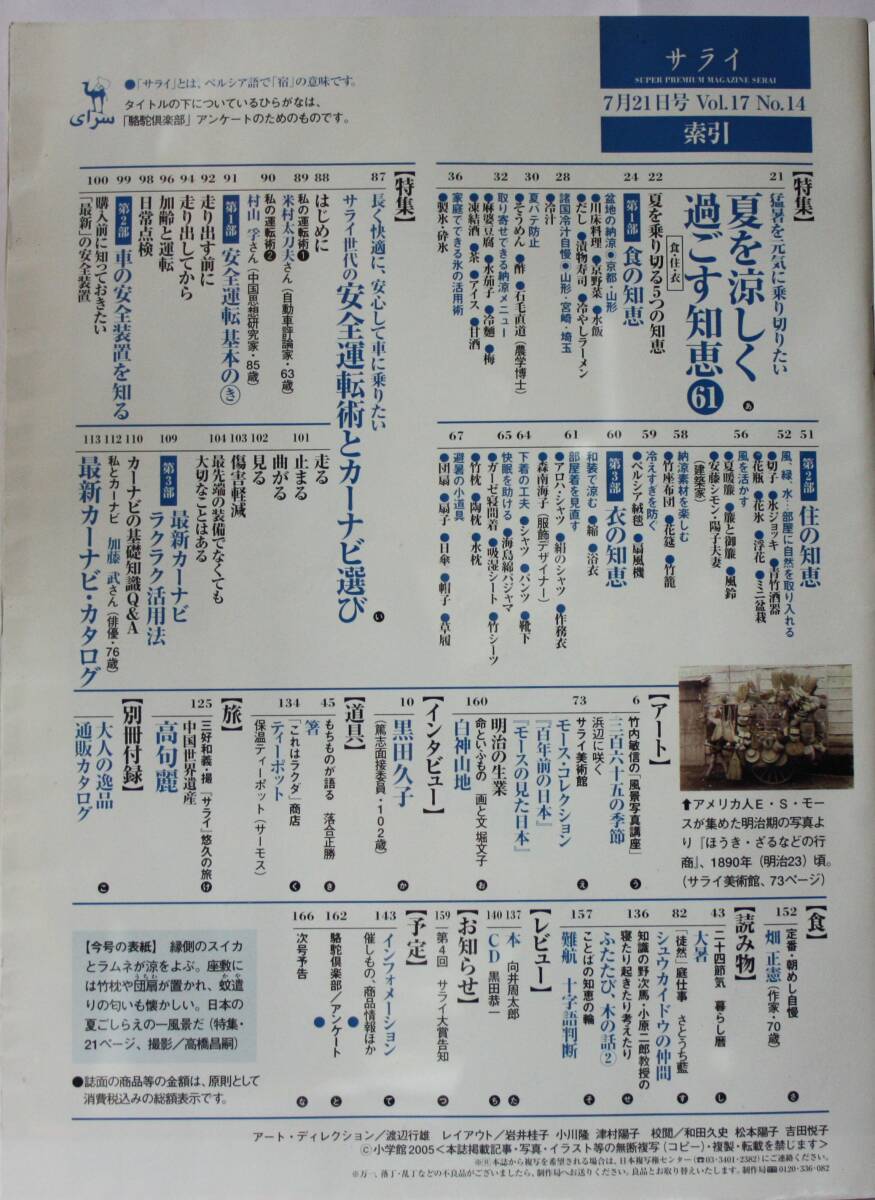 サライ
SUPER PREMIUM MAGAZINE SERAI
7月21日号 Vol.17 No.14
索引
●「サライ」とは、ペルシア語で「宿」の意味です。
タイトルの下についているひらがなは、
「駱駝倶楽部」アンケートのためのものです。
سرای
【特集】
21
猛暑を元気に乗り切りたい
夏を涼しく
過ごす知恵61
あ
食・住・衣
22
夏を乗り切る5つの知恵
24
第1部 食の知恵
盆地の納涼●京都・山形
●川床料理 ●京野菜 ●水飯
●だし ●漬物寿司 ●冷やしラーメン
28
諸国冷汁自慢●山形・宮崎・埼玉
●冷汁
30
夏バテ防止
●そうめん ●酢 ●石毛直道(農学博士)
32
取り寄せできる納涼メニュー
●麻婆豆腐 ●水茄子 ●冷麺 ●梅
●凍結酒 ●茶 ●アイス ●甘酒
36
家庭でできる氷の活用術
●製氷・砕氷
51
第2部 住の知恵
52
風、緑、水…部屋に自然を取り入れる
●切子 ●氷ジョッキ ●青竹酒器
●花瓶 ●花氷 ●浮花 ●ミニ盆栽
56
風を活かす
●夏暖簾 ●簾と御簾 ●風鈴
●安藤シモン・陽子夫妻
(建築家)
58
納涼素材を楽しむ
●竹座布団 ●花筵 ●竹籠
59
冷えすぎを防ぐ
●ペルシア絨毯 ●扇風機
60
第3部 衣の知恵
和装で涼む ●縮 ●浴衣
61
部屋着を見直す
●アロハ・シャツ ●絹のシャツ ●作務衣
●森南海子(服飾デザイナー)
64
下着の工夫 ●シャツ ●パンツ ●靴下
65
快眠を助ける ●海島綿パジャマ
●ガーゼ寝間着 ●吸湿シート ●竹シーツ
●竹枕 ●陶枕 ●水枕
67
避暑の小道具
●団扇 ●扇子 ●日傘 ●帽子 ●草履
【特集】
87
長く快適に、安心して車に乗りたい
サライ世代の安全運転術とカーナビ選び
い
88
はじめに
89
私の運転術❶
米村太刀夫さん(自動車評論家・63歳)
90
私の運転術❷
村山 孚さん(中国思想研究家・85歳)
91
第1部 安全運転 基本のき
92
走り出す前に
94
走り出してから
96
加齢と運転
98
日常点検
99
第2部 車の安全装置を知る
100
購入前に知っておきたい
「最新」の安全装置
101
走る
止まる
曲がる
102
見る
103
傷害軽減
104
最先端の装備でなくても
大切なことはある
109
第3部 最新カーナビ
ラクラク活用法
110
カーナビの基礎知識Q&A
112
私とカーナビ 加藤 武さん(俳優・76歳)
113
最新カーナビ・カタログ
⬆アメリカ人E・S・モー
スが集めた明治期の写真よ
り『ほうき・ざるなどの行
商』、1890年(明治23)頃。
(サライ美術館、73ページ)
【アート】
6
竹内敏信の「風景写真講座」
三百六十五の季節
う
浜辺に咲く
73
サライ美術館
モース・コレクション
『百年前の日本』
『モースの見た日本』
え
明治の生業
160
命といふもの 画と文 堀文子
白神山地
お
【インタビュー】
10
黒田久子
(篤志面接委員・102歳)
か
【道具】
45
もちものが語る 落合正勝
箸
き
134
「これはラクダ」商店
ティーポット
保温ティーポット(サーモス)
く
【旅】
125
三好和義・撮「サライ」悠久の旅
中国世界遺産
高句麗
け
【別冊付録】
大人の逸品
通販カタログ
こ
【食】
152
定番・朝めし自慢
畑 正憲(作家・70歳)
さ
【読み物】
43
二十四節気 暮らし暦
大暑
し
82
「徒然」庭仕事 さとうち藍
シュウカイドウの仲間
す
136
知識の野次馬・小原二郎教授の
寝たり起きたり考えたり
ふたたび、木の話②
せ
157
ことばの知恵の輪
難航 十字語判断
そ
【レビュー】
137
本 向井周太郎
た
140
CD 黒田恭一
ち
【お知らせ】
159
第4回 サライ大賞告知
つ
【予定】
143
インフォメーション
催しもの、商品情報ほか
て
162
駱駝倶楽部/アンケート
と
166
次号予告
な
【今号の表紙】 縁側のスイカ
とラムネが涼をよぶ。座敷に
は竹枕や団扇が置かれ、蚊遣
りの匂いも懐かしい。日本の
夏ごしらえの一風景だ(特集・
21ページ、撮影/高橋昌嗣)
●誌面の商品等の金額は、原則として
消費税込みの総額表示です。
アート・ディレクション/渡辺行雄 レイアウト/岩井桂子 小川隆 津村陽子 校閲/和田久史 松本陽子 吉田悦子
©小学館2005<本誌掲載記事・写真・イラスト等の無断複写(コピー)・複製・転載を禁じます>
※Ⓡ本誌から複写を希望される場合は、日本複写権センター(☎03-3401-2382)にご連絡ください。
※万一、落丁・乱丁などの不良品がございましたら、制作局へお送りください。良品とお取り替えいたします。制作局0120-336-082